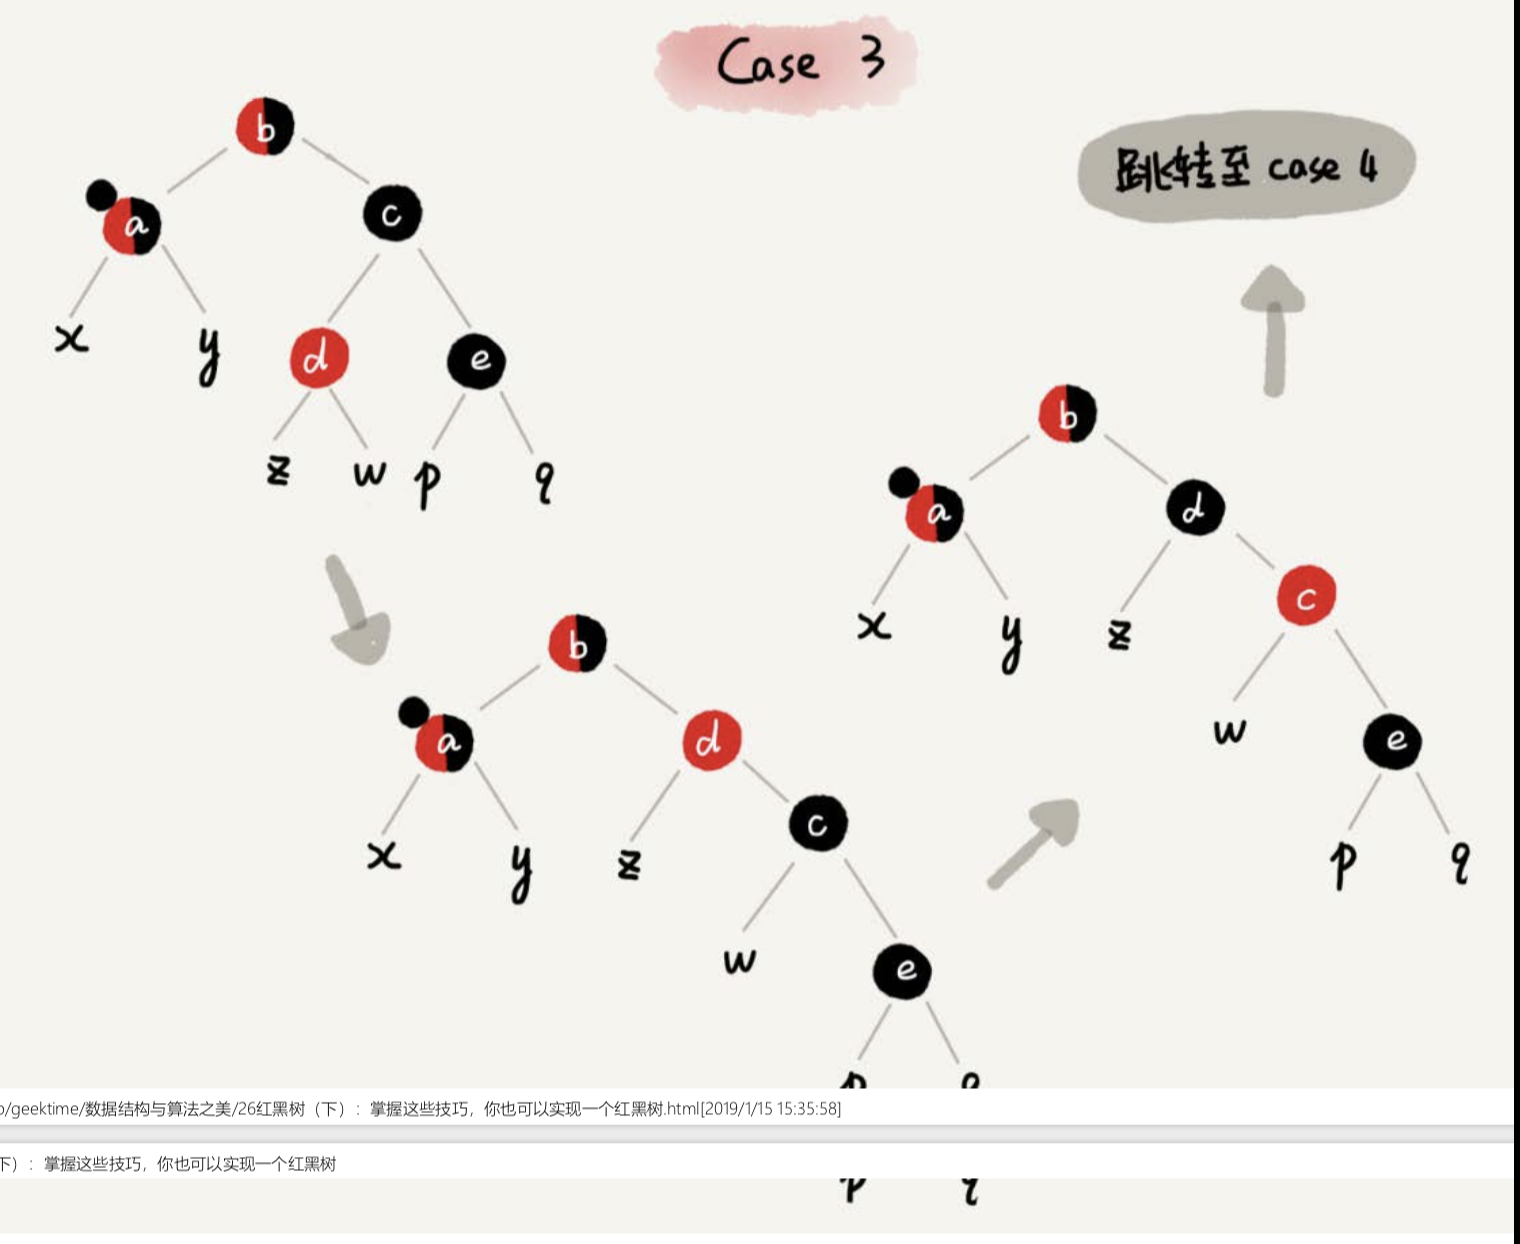 Case 3
跳转至 case 4
b
a
c
x
y
d
e
z
w
p
q
b
a
d
x
y
z
c
w
e
p
q
b
a
d
x
y
z
c
w
e
p
q
o/geektime/数据结构与算法之美/26红黑树（下）：掌握这些技巧，你也可以实现一个红黑树.html[2019/1/15 15:35:58]
下）：掌握这些技巧，你也可以实现一个红黑树